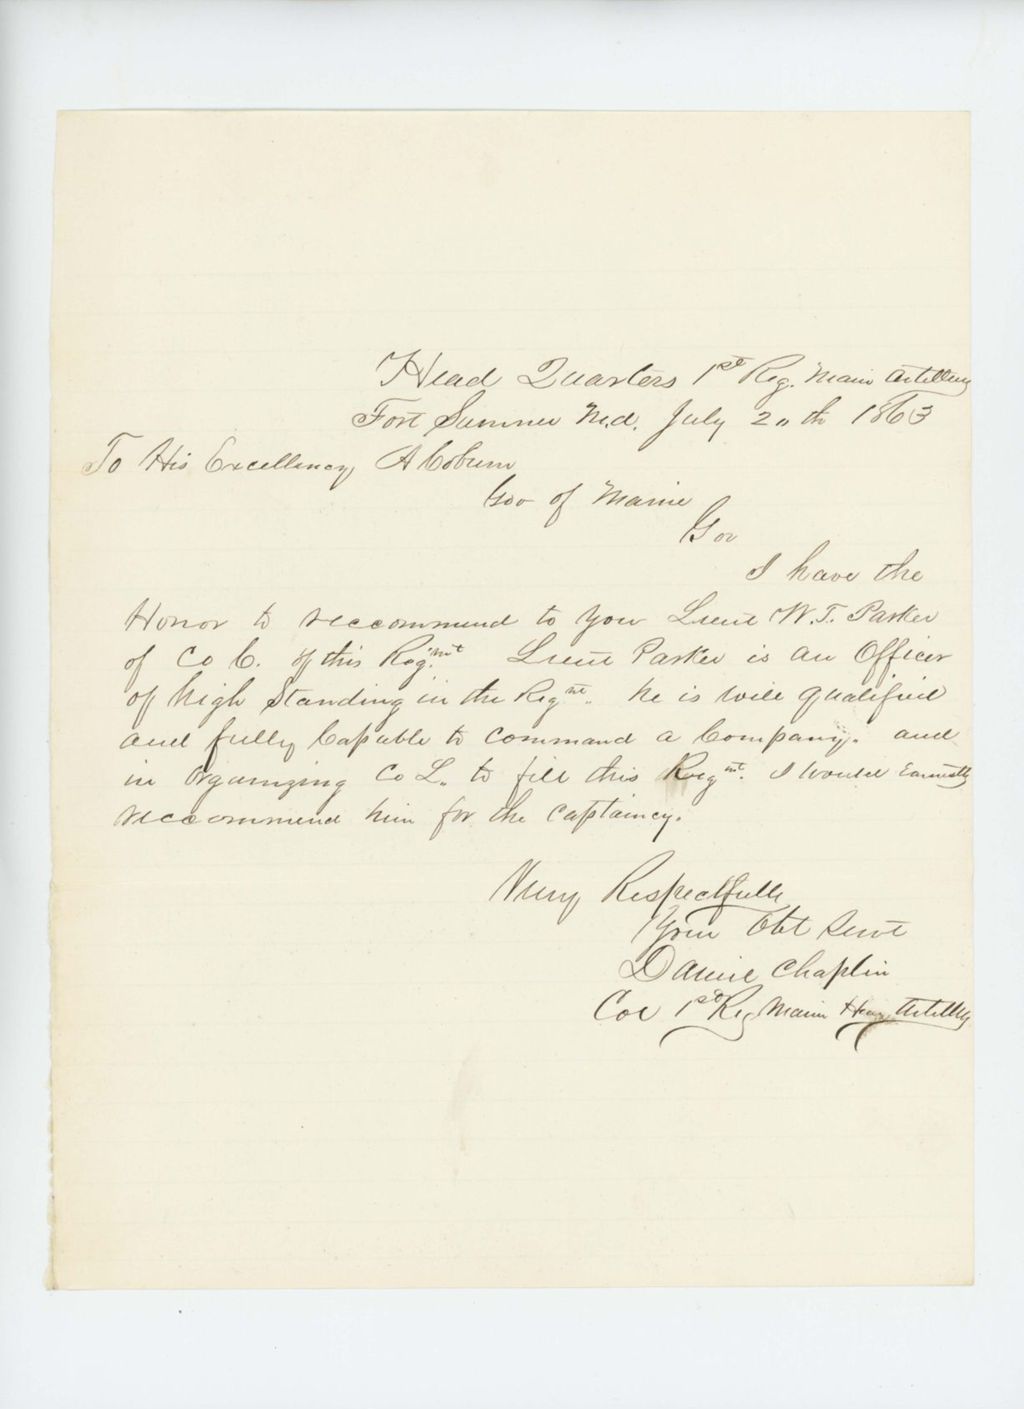 Head Quarters 1st Reg. Maine Artillery
Fort Sumner Md. July 20th 1863
To His Excellency A Coburn
Gov of Maine
Gov
I have the
Honor to reccommend to you Lieut W. T. Parker
of Co C. of this Regmt. Lieut Parker is an Officer
of high Standing in the Regmt. he is well qualified
and fully Capable to command a Company. and
in organizing Co L. to fill this Regmt. I would Earnestly
reccommend him for the Captaincy.
Very Respectfully
Your Obt Servt
Daniel Chaplin
Col 1st Reg Maine Heavy Artillery